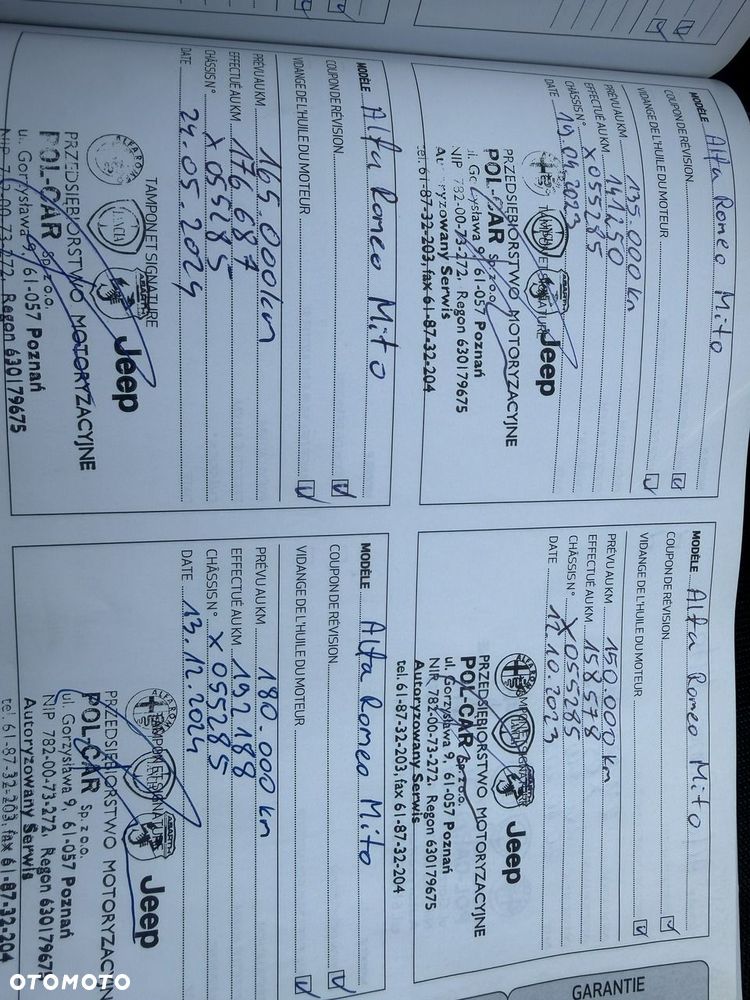 MODÈLE Alfa Romeo Mito
COUPON DE RÉVISION
VIDANGE DE L'HUILE DU MOTEUR
PRÉVU AU KM 135.000 km
EFFECTUÉ AU KM 141250
CHÂSSIS N° X055285
DATE 19.04.2023
TAMPON ET SIGNATURE
Jeep
PRZEDSIĘBIORSTWO MOTORYZACYJNE
POL-CAR Sp. z o.o.
ul. Gorzysława 9, 61-057 Poznań
NIP 782-00-73-272, Regon 630179675
Autoryzowany Serwis
tel. 61-87-32-203, fax 61-87-32-204
MODÈLE Alfa Romeo Mito
COUPON DE RÉVISION
VIDANGE DE L'HUILE DU MOTEUR
PRÉVU AU KM 150.000 km
EFFECTUÉ AU KM 158578
CHÂSSIS N° X055285
DATE 12.10.2023
TAMPON ET SIGNATURE
Jeep
PRZEDSIĘBIORSTWO MOTORYZACYJNE
POL-CAR Sp. z o.o.
ul. Gorzysława 9, 61-057 Poznań
NIP 782-00-73-272, Regon 630179675
Autoryzowany Serwis
tel. 61-87-32-203, fax 61-87-32-204
MODÈLE Alfa Romeo Mito
COUPON DE RÉVISION
VIDANGE DE L'HUILE DU MOTEUR
PRÉVU AU KM 165.000km
EFFECTUÉ AU KM 176687
CHÂSSIS N° X055285
DATE 24.05.2024
TAMPON ET SIGNATURE
LANCIA ABARTH Jeep
PRZEDSIĘBIORSTWO MOTORYZACYJNE
POL-CAR Sp. z o.o.
ul. Gorzysława 9, 61-057 Poznań
NIP 782-00-73-272, Regon 630179675
MODÈLE Alfa Romeo Mito
COUPON DE RÉVISION
VIDANGE DE L'HUILE DU MOTEUR
PRÉVU AU KM 180.000 km
EFFECTUÉ AU KM 192188
CHÂSSIS N° X055285
DATE 13.12.2024
TAMPON ET SIGNATURE
ABARTH Jeep
PRZEDSIĘBIORSTWO MOTORYZACYJNE
POL-CAR Sp. z o.o.
ul. Gorzysława 9, 61-057 Poznań
NIP 782-00-73-272, Regon 630179675
Autoryzowany Serwis
tel. 61-87-32-203, fax 61-87-32-204
GARANTIE
OTOMOTO